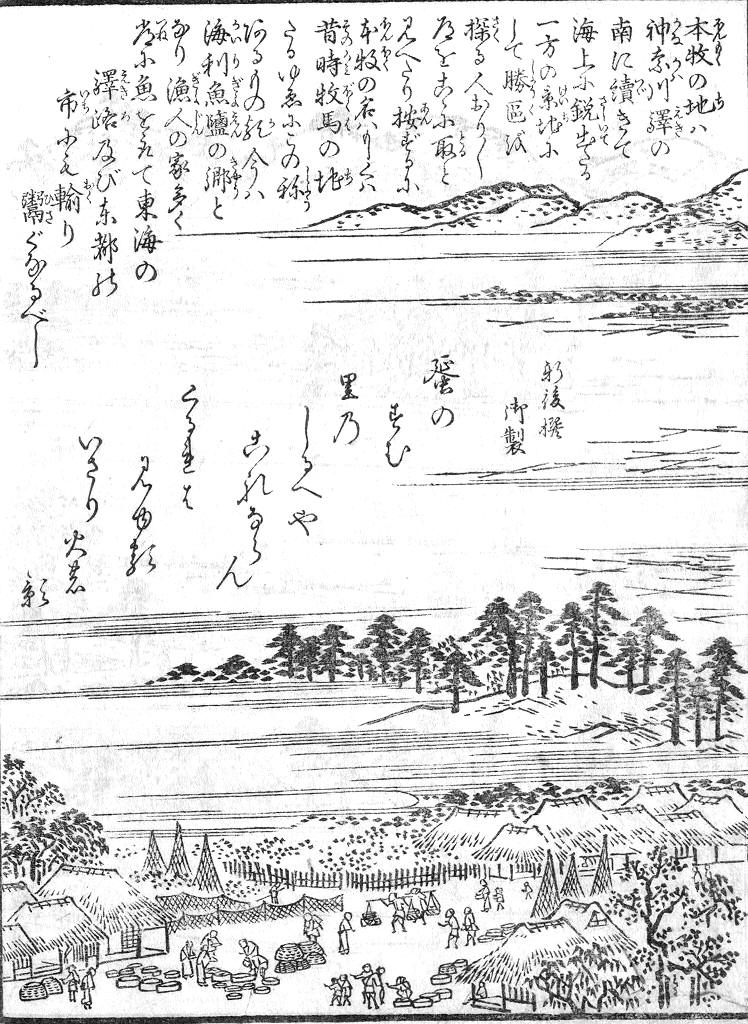 本牧の地ハ
神奈川驛の
南に續きて
海上に鋭出たる
一方の景地に
して勝區を
探る人
道をこゝに取と
見へたり按ずるに
本牧の名ハもと
昔時牧馬の地
たるゆゑにこの称
あるもの歟今ハ
海利魚鹽の郷と
なり漁人の家多く
常に魚をとりて東海の
驛路及び東都の
市にも輸り
鬻ぐなるべし
新後撰
御製
蜑の
すむ
里乃
しるへや
これならん
くるれは
見ゆる
いさり
火の
影